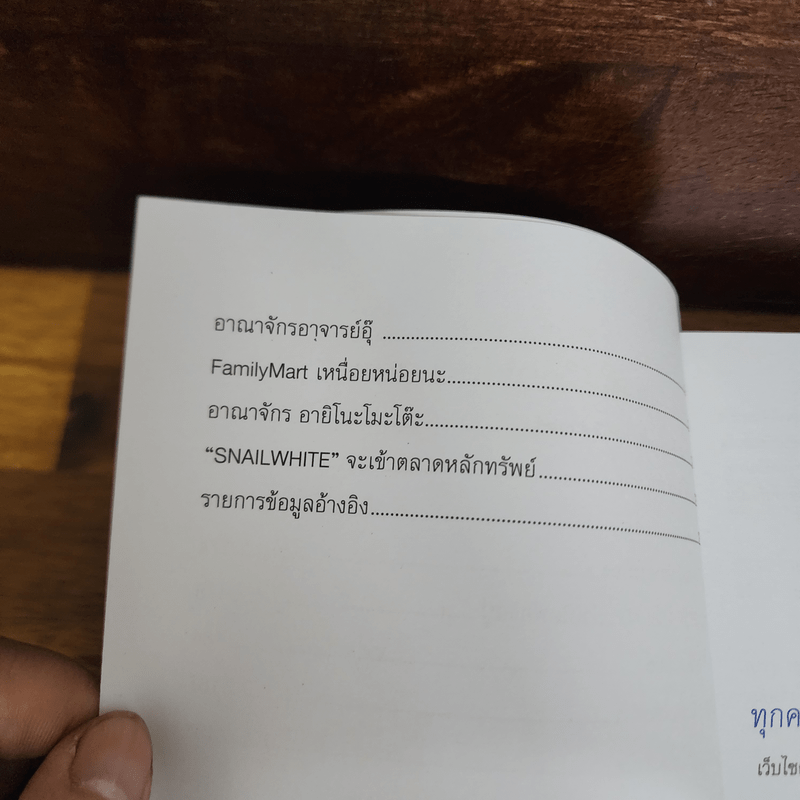 อาณาจักรอาจารย์อุ๊ ........................................................
FamilyMart เหนื่อยหน่อยนะ........................................................
อาณาจักร อายิโนะโมะโต๊ะ........................................................
“SNAILWHITE” จะเข้าตลาดหลักทรัพย์........................................................
รายการข้อมูลอ้างอิง........................................................
ทุกค